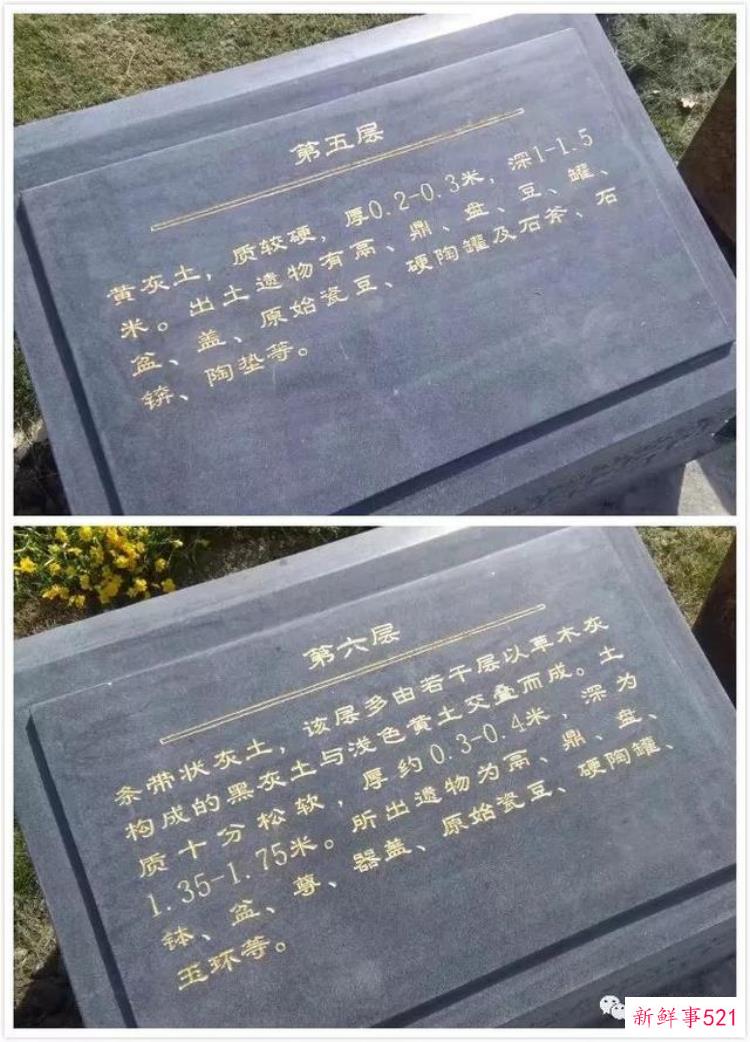 第五层
黄灰土，质较硬，厚0.2-0.3米，深1-1.5
米。出土遗物有鬲、鼎、盘、豆、罐、
盆、盖、原始瓷豆、硬陶罐及石斧、石
锛、陶垫等。
第六层
条带状灰土，该层多由若干层以草木灰
构成的黑灰土与浅色黄土交叠而成。土
质十分松软，厚约0.3-0.4米，深为
1.35-1.75米。所出遗物为鬲、鼎、盘、
钵、盆、尊、器盖、原始瓷豆、硬陶罐、
玉环等。
新鲜事521